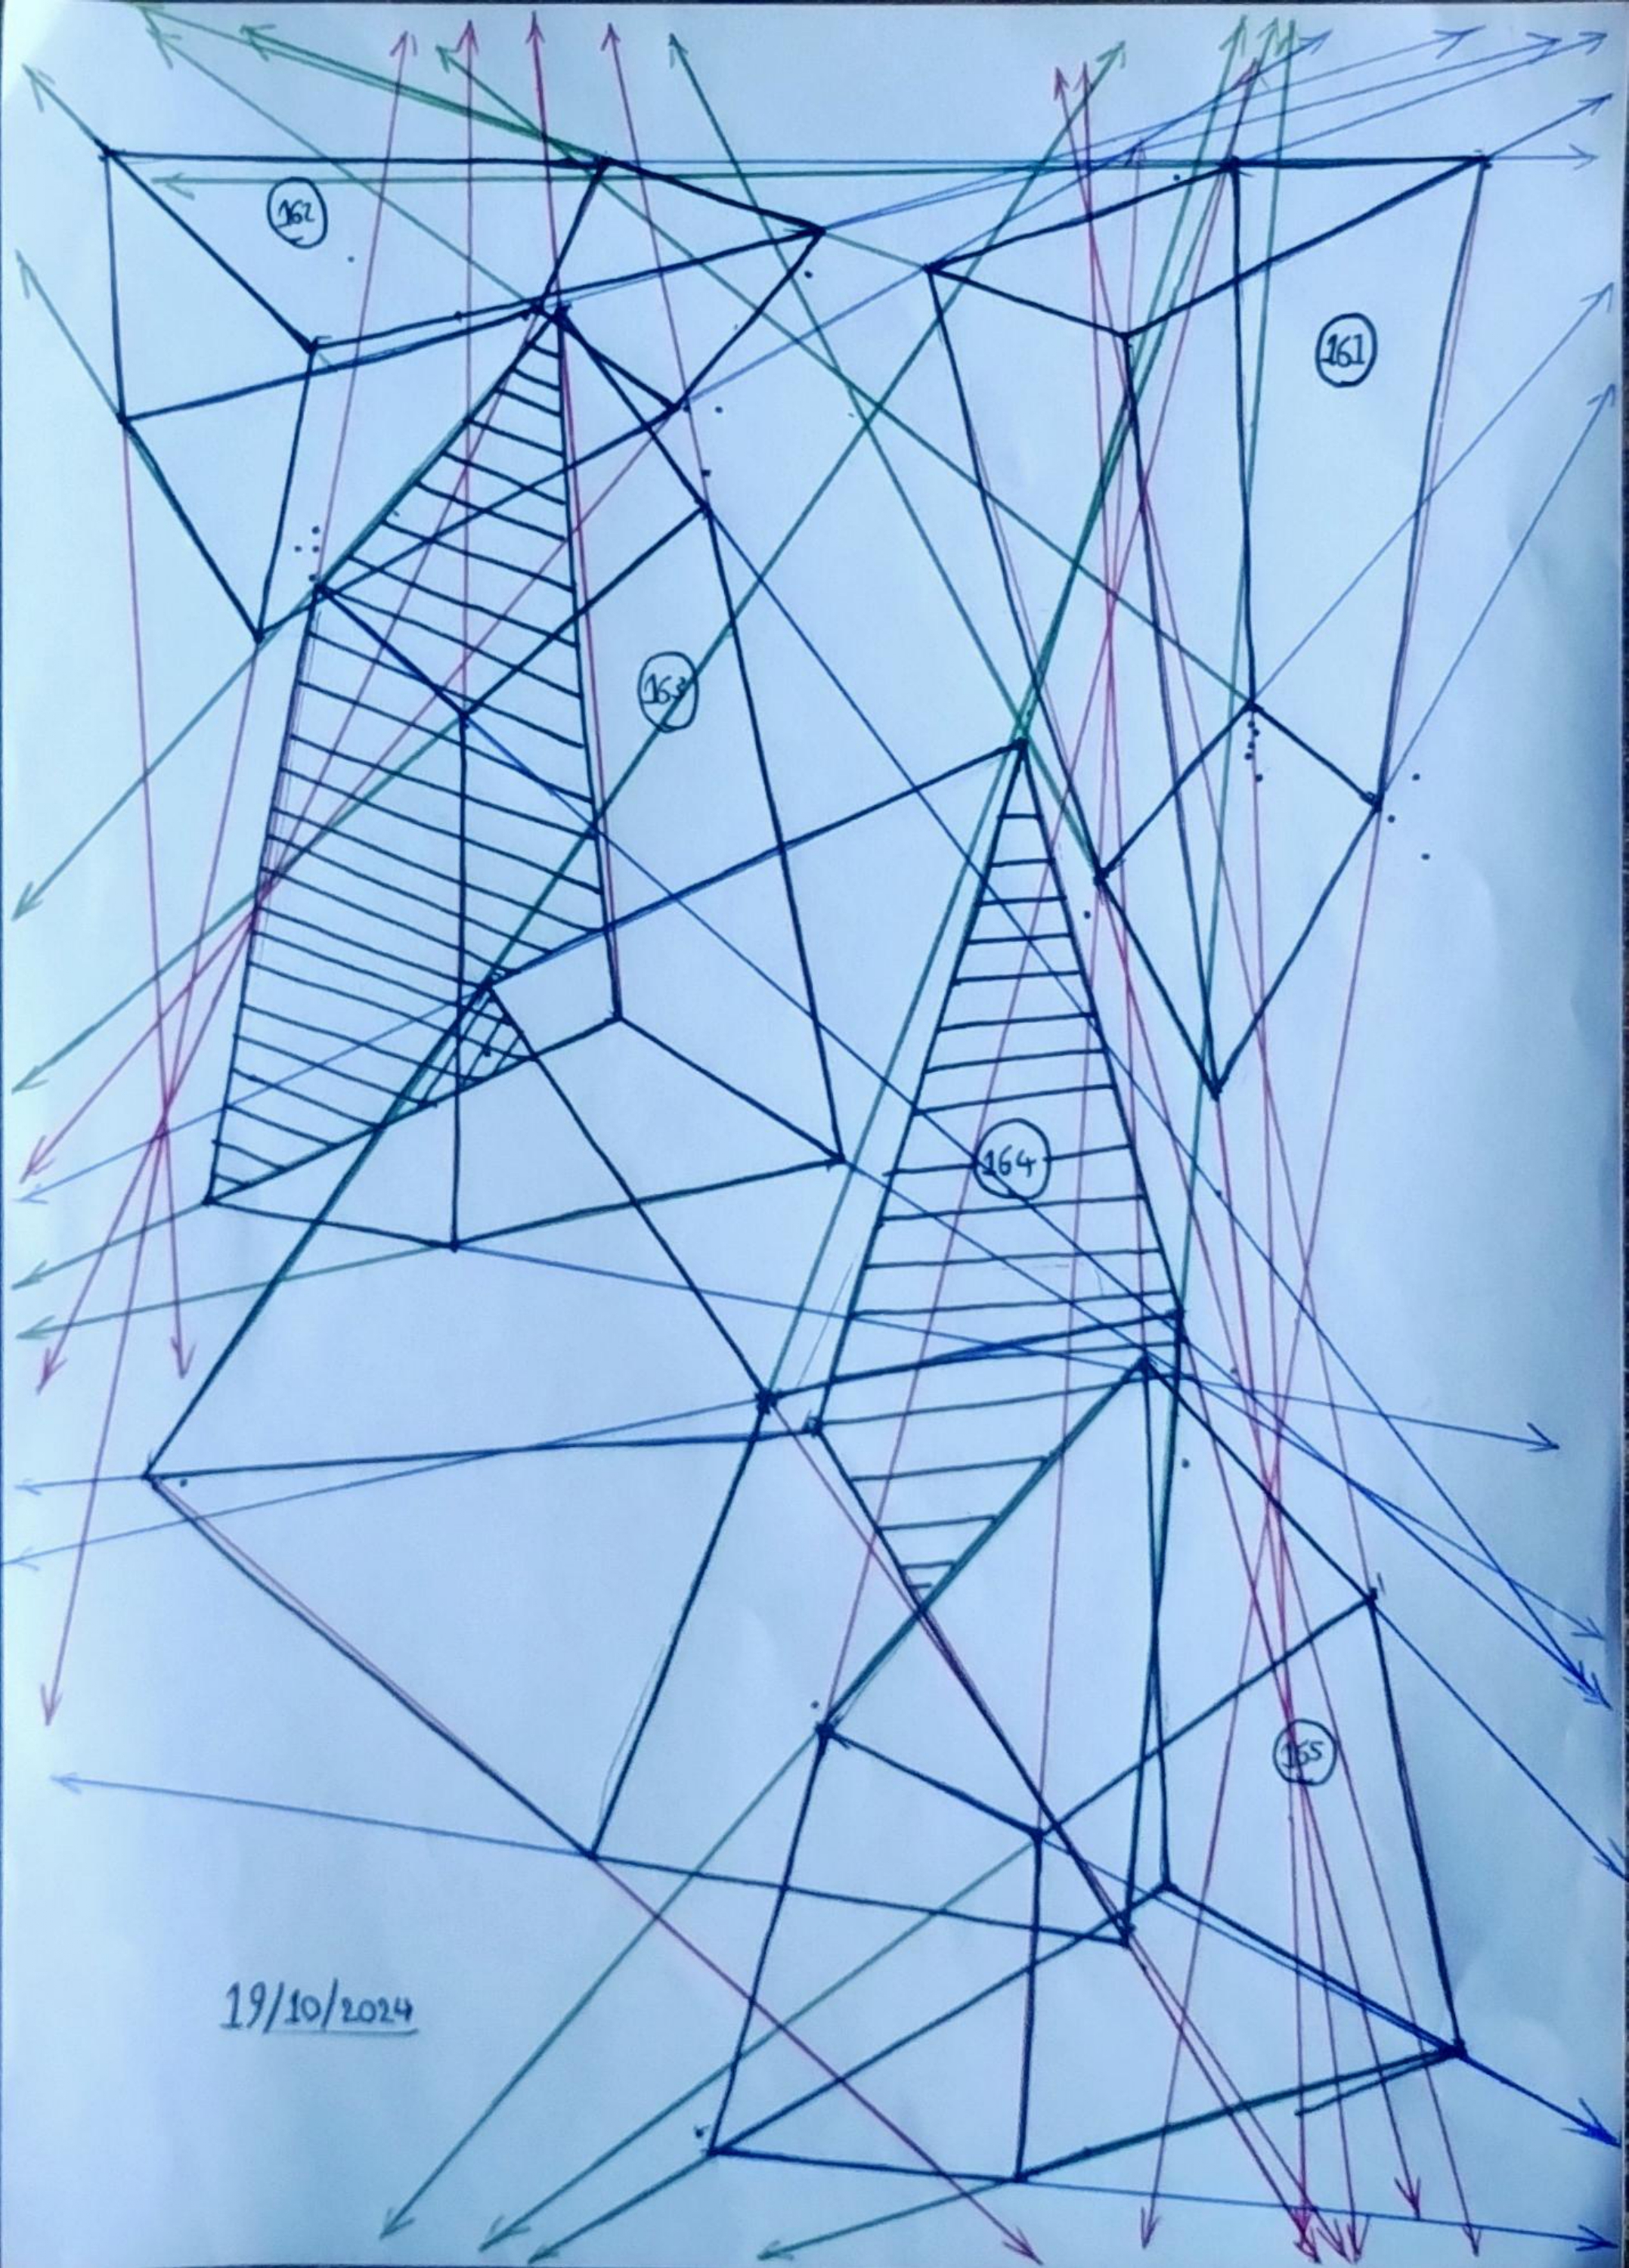 162
161
163
164
165
19/10/2024